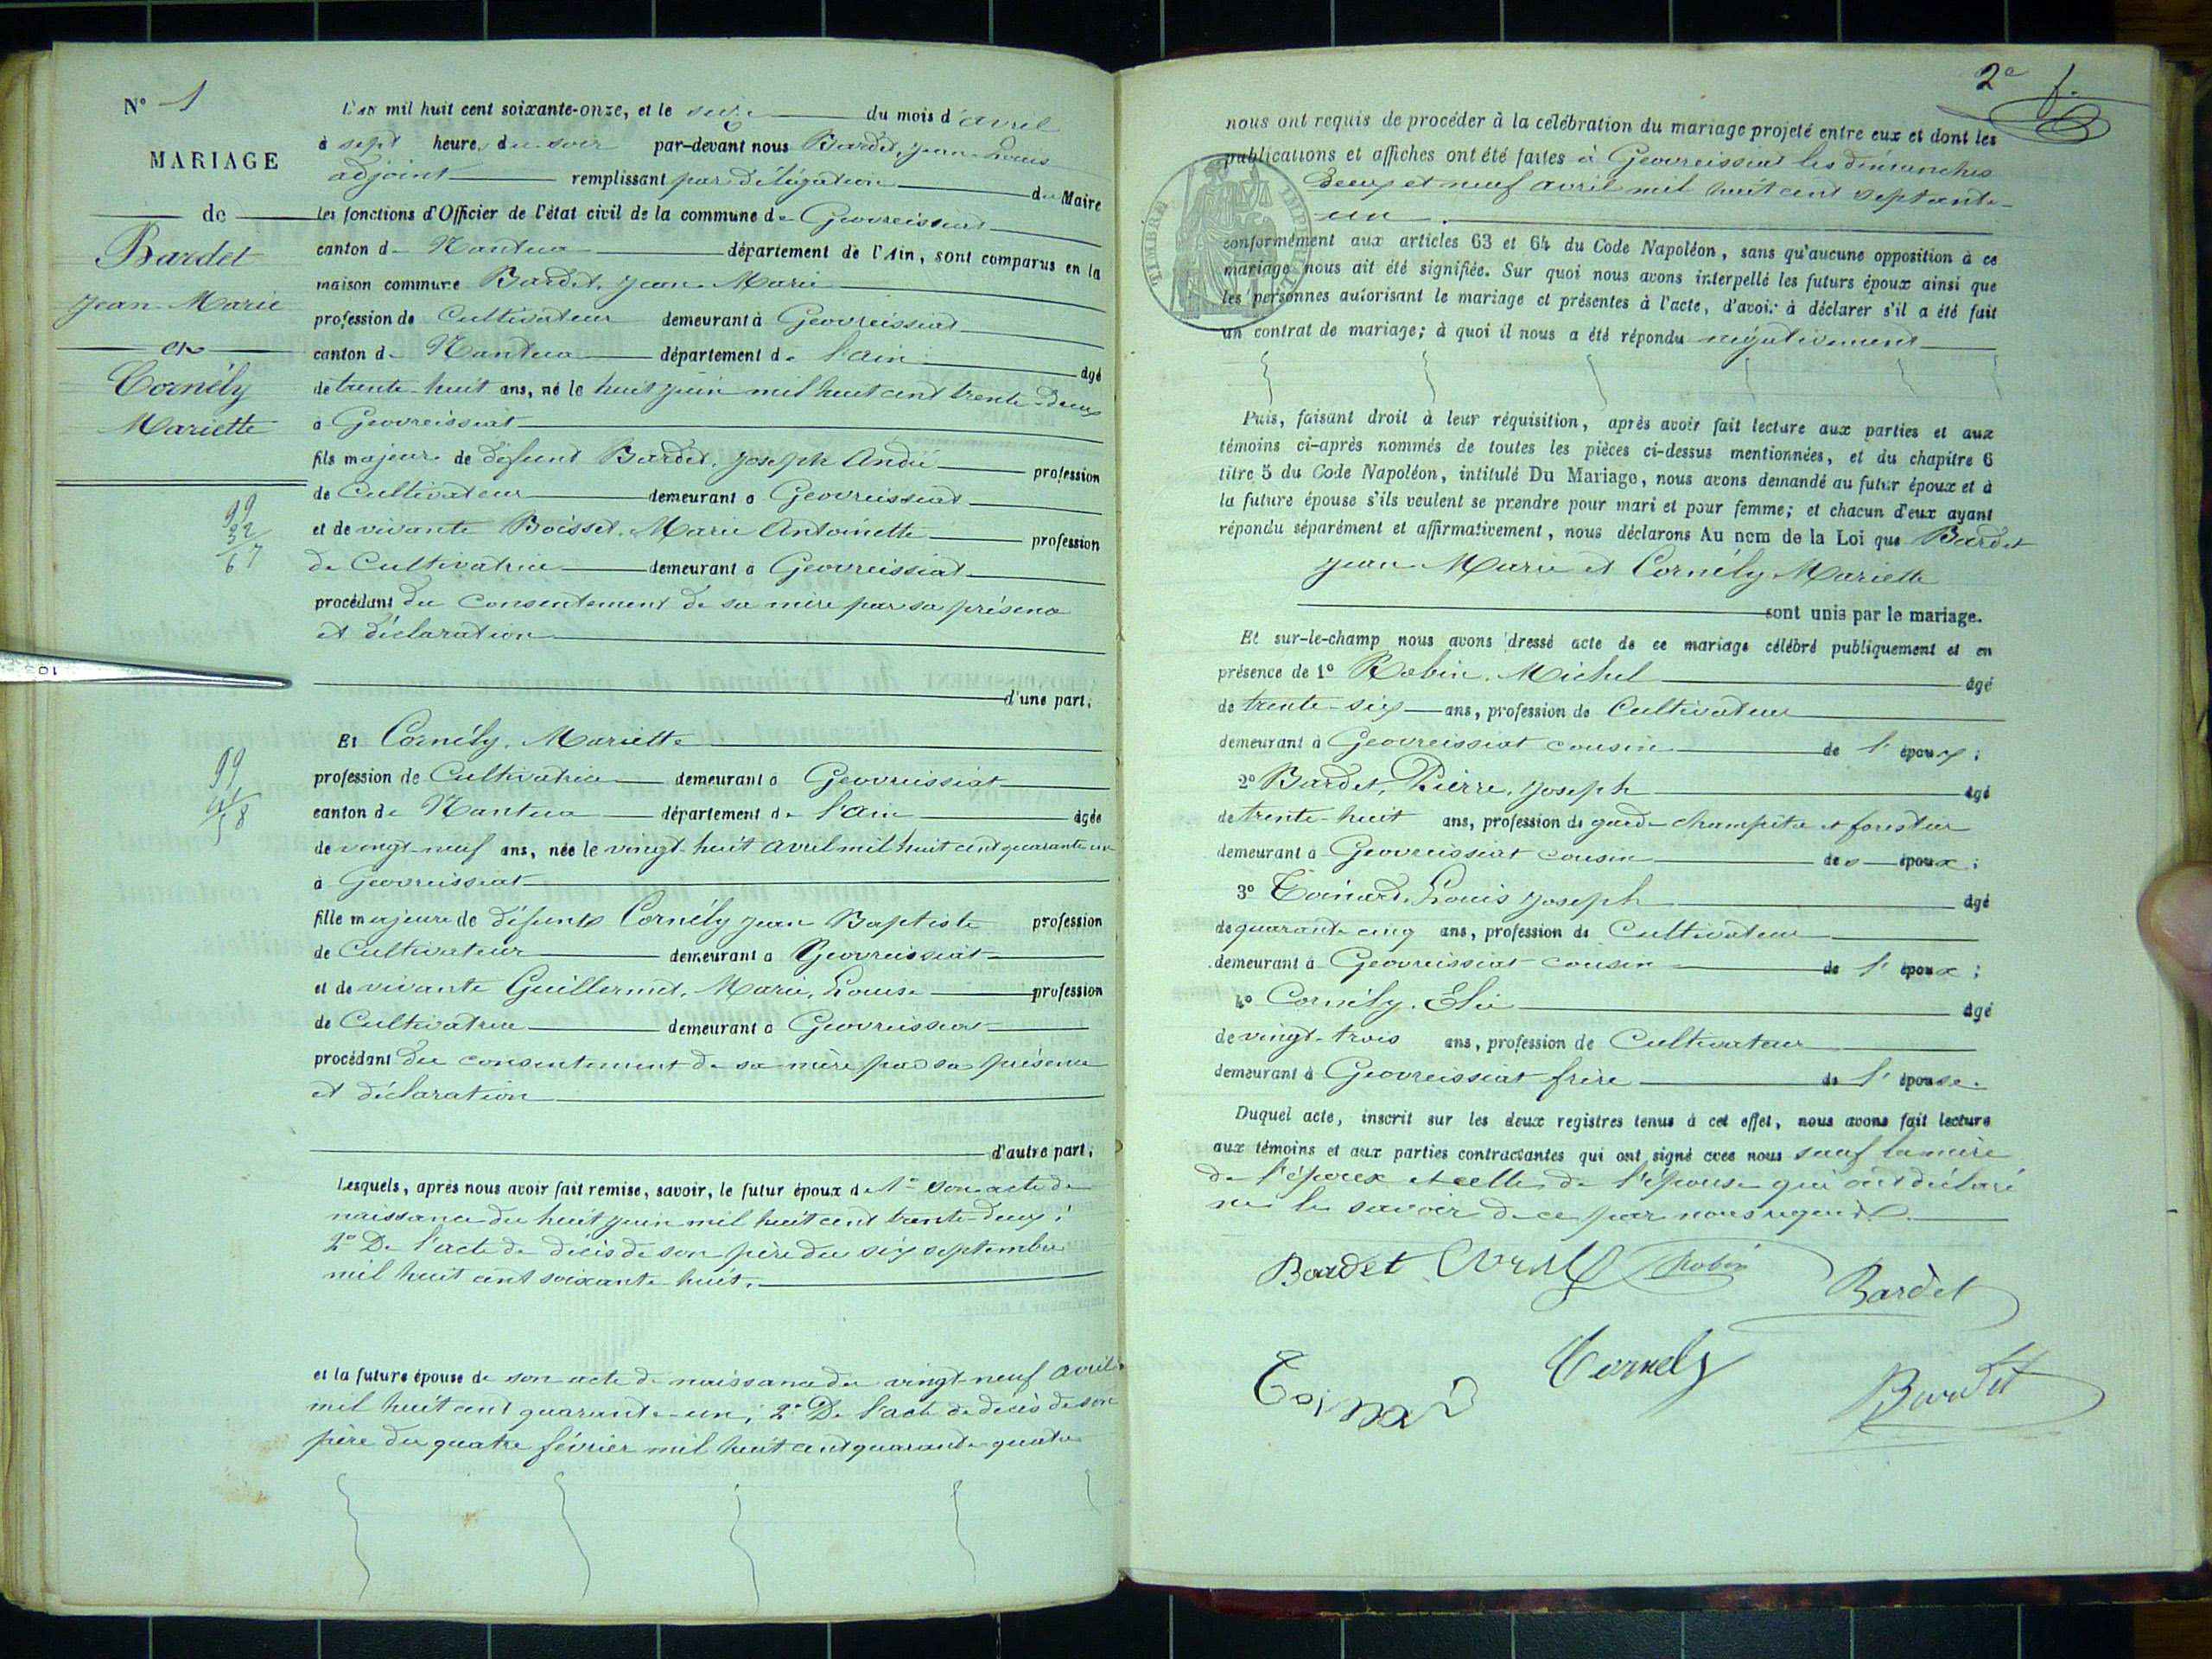 N° 1
MARIAGE
de
Bardet
Jean Marie
et
Cornély
Mariette
99
32
67
99
41
58
L'an mil huit cent soixante-onze, et le seize du mois d'avril
à sept heures du soir par-devant nous Bardet, Jean Louis
adjoint remplissant par délégation du Maire
les fonctions d'Officier de l'état civil de la commune de Geovreissiat
canton de Nantua département de l'Ain, sont comparus en la
maison commune Bardet, Jean Marie
profession de Cultivateur demeurant à Geovreissiat
canton de Nantua département de l'Ain âgé
de trente-huit ans, né le huit juin mil huit cent trente-deux
à Geovreissiat
fils majeur de défunt Bardet, Joseph André profession
de Cultivateur demeurant à Geovreissiat
et de vivante Boisset, Marie Antoinette profession
de Cultivatrice demeurant à Geovreissiat
procédant du consentement de sa mère par sa présence
et déclaration
d'une part;
Et Cornély, Mariette
profession de Cultivatrice demeurant à Geovreissiat
canton de Nantua département de l'Ain âgée
de vingt-neuf ans, née le vingt-huit avril mil huit cent quarante un
à Geovreissiat
fille majeure de défunt Cornély Jean Baptiste profession
de Cultivateur demeurant à Geovreissiat
et de vivante Guillermet, Marie, Louise profession
de Cultivatrice demeurant à Geovreissiat
procédant du consentement de sa mère par sa présence
et déclaration
d'autre part;
Lesquels, après nous avoir fait remise, savoir, le futur époux de 1° son acte de
naissance du huit juin mil huit cent trente-deux;
2° De l'acte de décès de son père du six septembre
mil huit cent soixante huit.
et la future épouse de son acte de naissance du vingt-neuf avril
mil huit cent quarante-un; 2° De l'acte de décès de son
père du quatre février mil huit cent quarante quatre
2e f.
nous ont requis de procéder à la célébration du mariage projeté entre eux et dont les
publications et affiches ont été faites à Geovreissiat les dimanches
deux et neuf avril mil huit cent septante-
un.
TIMBRE IMPERIAL
conformément aux articles 63 et 64 du Code Napoléon, sans qu'aucune opposition à ce
mariage nous ait été signifiée. Sur quoi nous avons interpellé les futurs époux ainsi que
les personnes autorisant le mariage et présentes à l'acte, d'avoir à déclarer s'il a été fait
un contrat de mariage; à quoi il nous a été répondu négativement
Puis, faisant droit à leur réquisition, après avoir fait lecture aux parties et aux
témoins ci-après nommés de toutes les pièces ci-dessus mentionnées, et du chapitre 6
titre 5 du Code Napoléon, intitulé Du Mariage, nous avons demandé au futur époux et à
la future épouse s'ils veulent se prendre pour mari et pour femme; et chacun d'eux ayant
répondu séparément et affirmativement, nous déclarons Au nom de la Loi que Bardet
Jean Marie et Cornély Mariette
sont unis par le mariage.
Et sur-le-champ nous avons dressé acte de ce mariage célébré publiquement et en
présence de 1° Robin, Michel âgé
de trente-six ans, profession de Cultivateur
demeurant à Geovreissiat cousin de l'époux;
2° Bardet, Pierre, Joseph âgé
de trente-huit ans, profession de garde champêtre et forestier
demeurant à Geovreissiat cousin de époux;
3° Toinard, Louis Joseph âgé
de quarante cinq ans, profession de Cultivateur
demeurant à Geovreissiat cousin de l'époux;
4° Cornély, Elie âgé
de vingt-trois ans, profession de Cultivateur
demeurant à Geovreissiat frère de l'épouse.
Duquel acte, inscrit sur les deux registres tenus à cet effet, nous avons fait lecture
aux témoins et aux parties contractantes qui ont signé avec nous sauf la mère
de l'époux et celle de l'épouse qui ont déclaré
ne le savoir de ce par nous requis.
Bardet Robin
Bardet
Toinard Cornely
Bardet